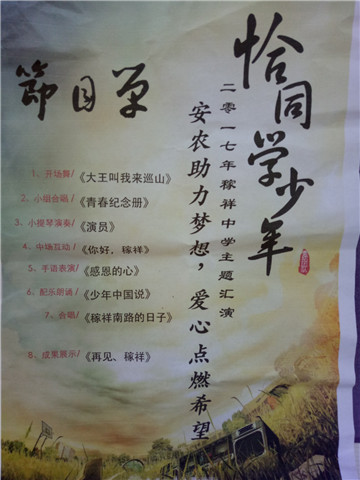 恰同学少年
二零一七年稼祥中学主题汇演
安农助力梦想，爱心点燃希望
節目单
1、开场舞/《大王叫我来巡山》
2、小组合唱/《青春纪念册》
3、小提琴演奏/《演员》
4、中场互动/《你好，稼祥》
5、手语表演/《感恩的心》
6、配乐朗诵/《少年中国说》
7、合唱/《稼祥南路的日子》
8、成果展示/《再见、稼祥》